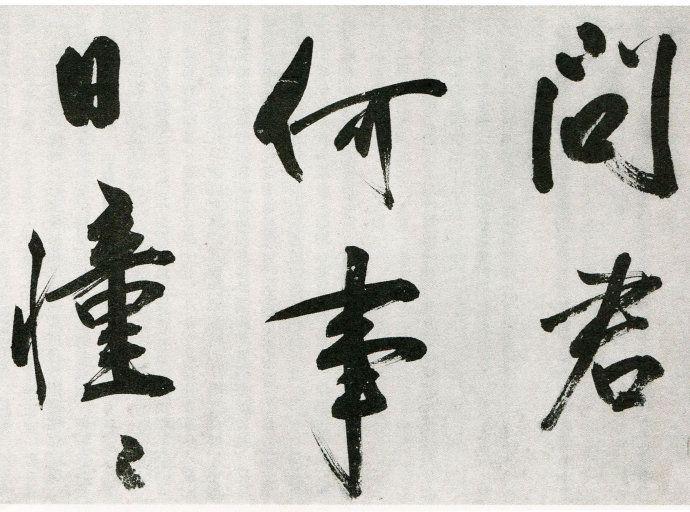 问君
何事
日憧々